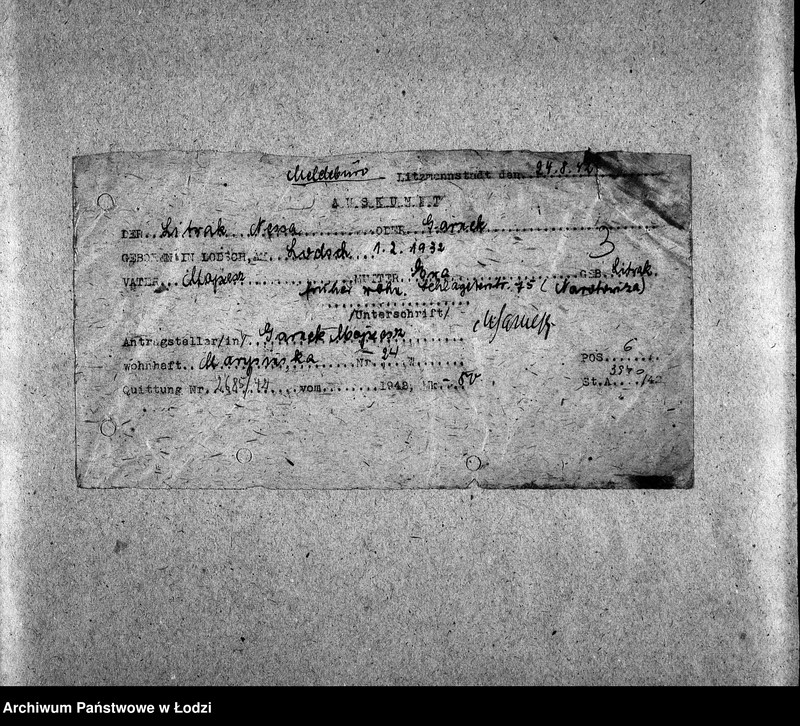 Meldebüro Litzmannstadt den. 24.8.42
A.U.S.K.U.N.F.T
DER..Litrak Nessa......ODER Garnek
3
GEBOREN IN LODSCH, AM. Lodsch 1.2.1932
VATER..Majesz......MUTTER. ......GEB. Litrak.
früher wohn. Schlageterstr. 75 (Narutowicza)
/Unterschrift/
Antragsteller/in/.. Garnek Majesz
wohnhaft.. Marysińska......Nr. 24 W.......
POS. 6
Quittung Nr. 2685/42....vom.......1942, Mk. -.50
St.A. 3340/42
Archiwum Państwowe w Łodzi